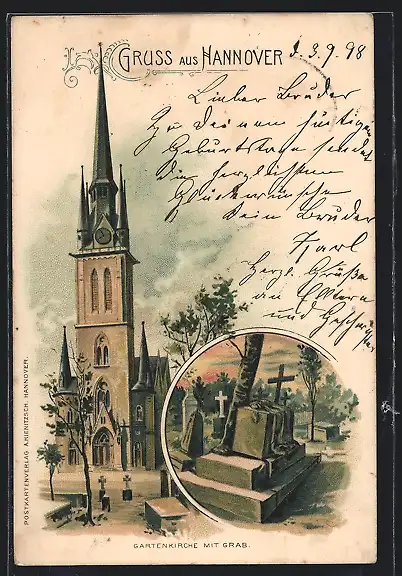 GRUSS AUS HANNOVER d. 3.9.98
Lieber Bruder
Zu Deinem heutigen
Geburtstage sendet
die herzlichsten
Glückwünsche
Dein Bruder
Karl
Herzl. Grüße
an Eltern
und Geschwister
POSTKARTENVERLAG A. KIENITZSCH, HANNOVER.
GARTENKIRCHE MIT GRAB.